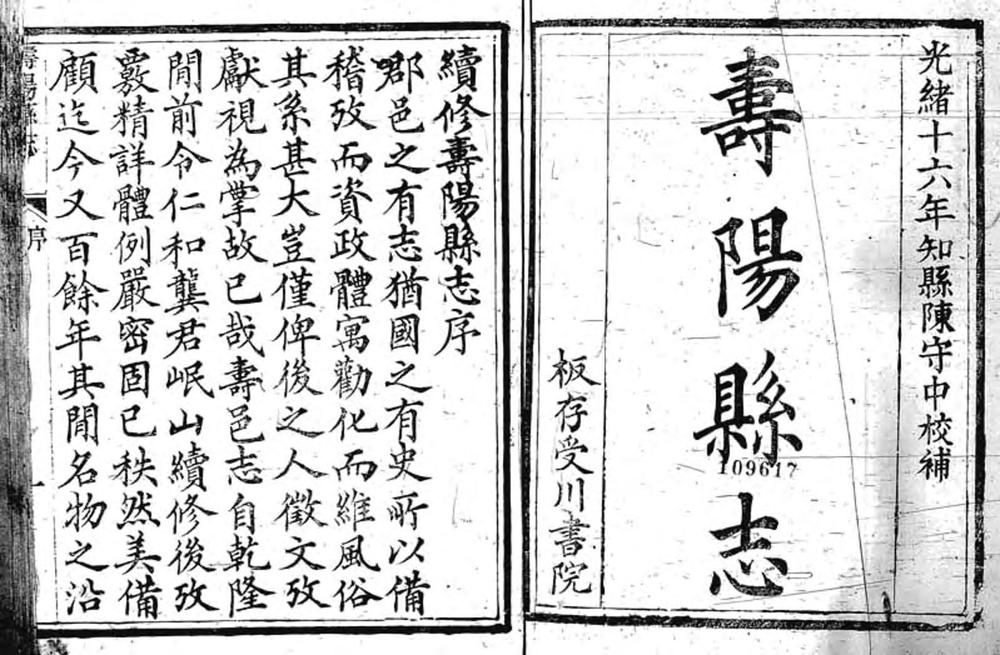 光緒十六年知縣陳守中校補
壽陽縣志
109617
板存受川書院
續修壽陽縣志序
郡邑之有志猶國之有史所以備
稽攷而資政體寓勸化而維風俗
其系甚大豈僅俾後之人徵文攷
獻視為掌故已哉壽邑志自乾隆
閒前令仁和龔君岷山續修後攷
覈精詳體例嚴密固已秩然美備
顧迄今又百餘年其閒名物之沿
序
一